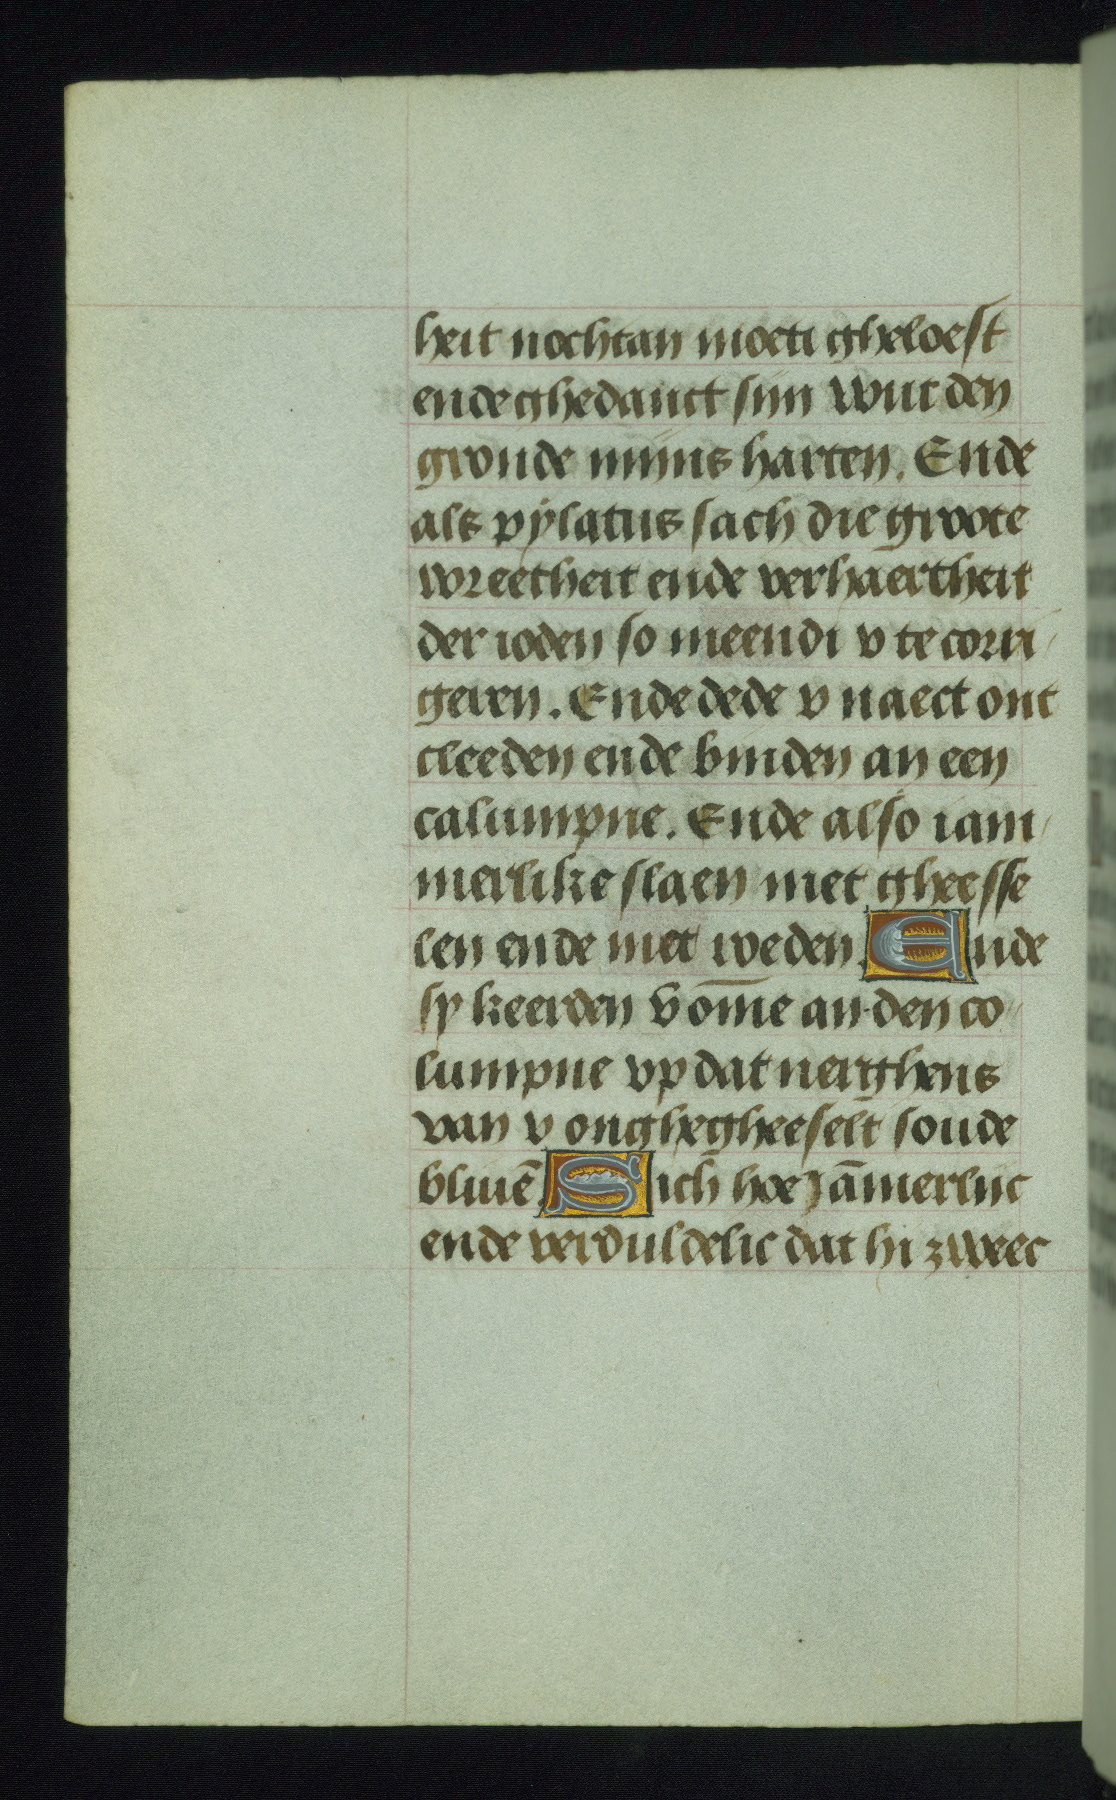 heit nochtan moeti gheloeft
ende ghedanct sijn wut den
gronde mijns harten. Ende
als pÿlatus sach die groote
wreetheit ende verhaertheit
der ioden so meendi v te corri
geren. Ende dede v naect ont
cleeden ende binden an een
calumpne. Ende also iam
merlike slaen met gheesse
len ende met roeden. Ende
sy keerden v̄ om̄e an den co
lumpne vp dat nerghens
van v onghegheeselt soude
bliuē. Sich hoe jāmerlijc
ende verduldelic dat hi zweec